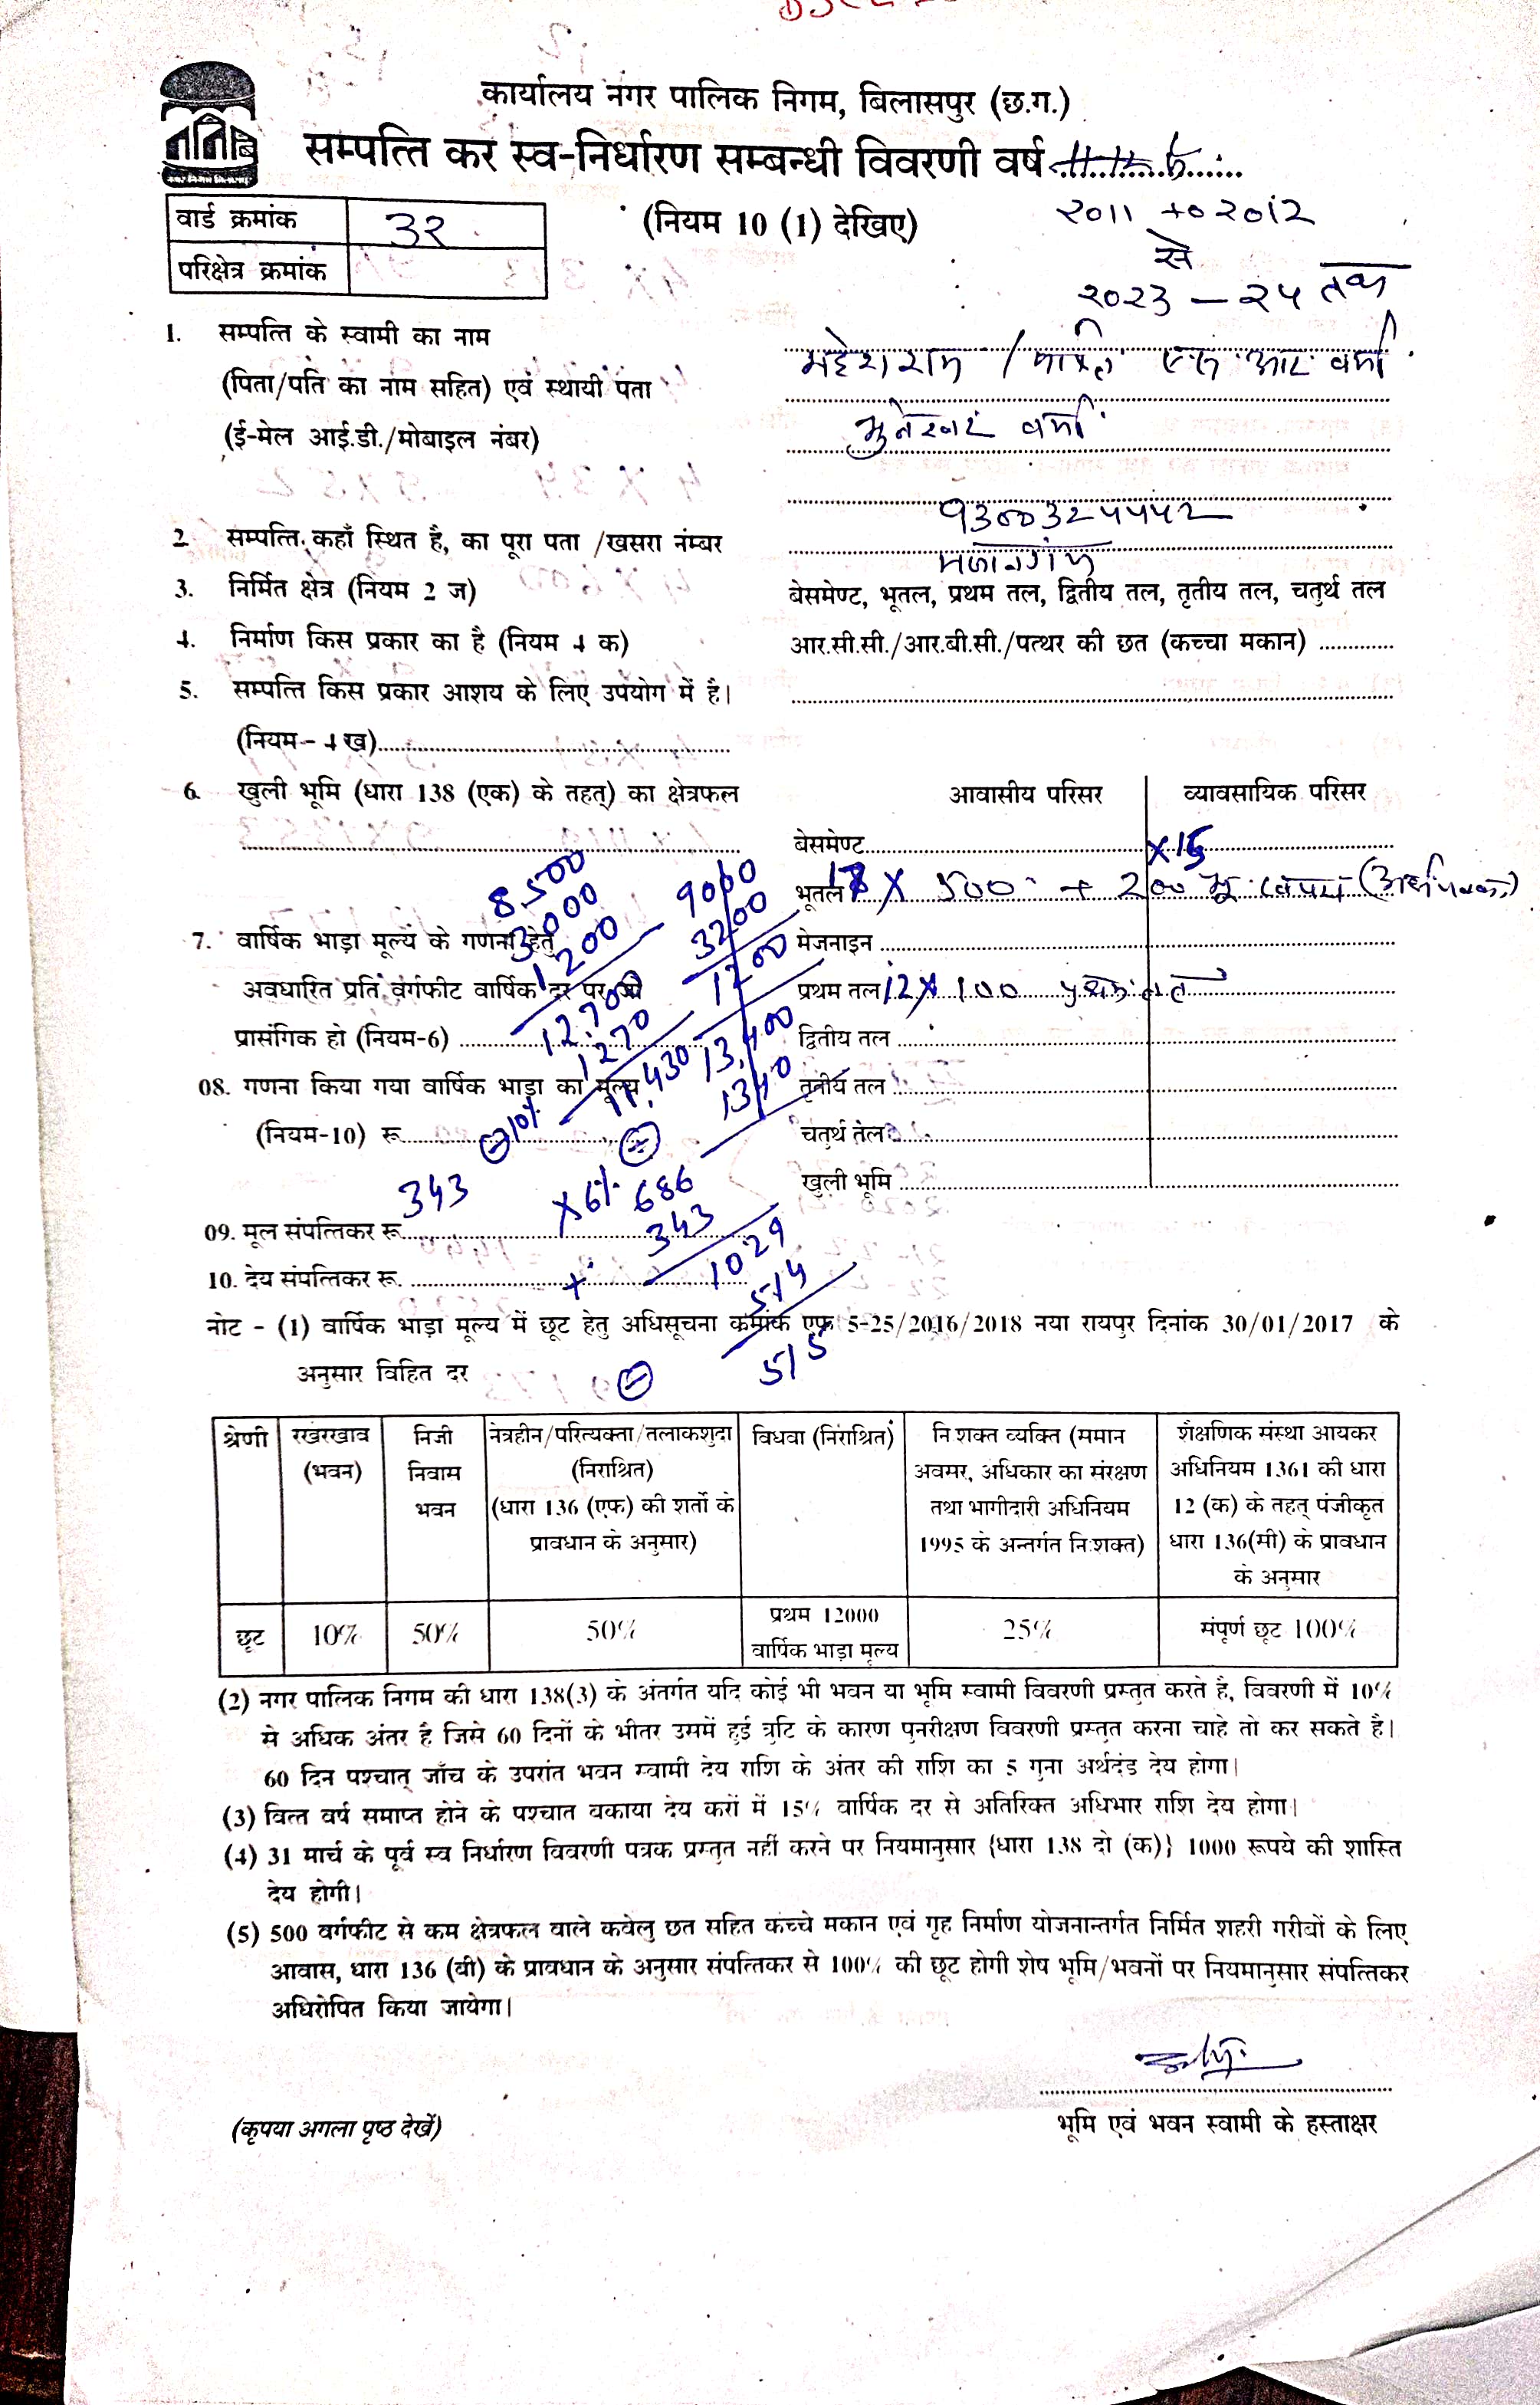 कार्यालय नगर पालिक निगम, बिलासपुर (छ.ग.)
सम्पत्ति कर स्व-निर्धारण सम्बन्धी विवरणी वर्ष
(नियम 10 (1) देखिए)
वार्ड क्रमांक 3२
परिक्षेत्र क्रमांक
२०11 to 2012
से
२०२3 – २५ तक
1. सम्पत्ति के स्वामी का नाम
महेशराम / आर वर्मा
(पिता/पति का नाम सहित) एवं स्थायी पता
वर्मा
(ई-मेल आई.डी./मोबाइल नंबर)
2 सम्पत्ति कहाँ स्थित है, का पूरा पता /खसरा नंम्बर
3. निर्मित क्षेत्र (नियम 2 ज) बेसमेण्ट, भूतल, प्रथम तल, द्वितीय तल, तृतीय तल, चतुर्थ तल
4. निर्माण किस प्रकार का है (नियम 4 क) आर.सी.सी./आर.बी.सी./पत्थर की छत (कच्चा मकान)
5. सम्पत्ति किस प्रकार आशय के लिए उपयोग में है।
(नियम- 4 ख)
6. खुली भूमि (धारा 138 (एक) के तहत्) का क्षेत्रफल
आवासीय परिसर व्यावसायिक परिसर
बेसमेण्ट ×16
भूतल × 500 + 200
मेजनाइन
प्रथम तल 12× 100
द्वितीय तल
तृतीय तल
चतुर्थ तल
खुली भूमि
7. वार्षिक भाड़ा मूल्य के गणना हेतु
अवधारित प्रति वर्गफीट वार्षिक दर पर जो
प्रासंगिक हो (नियम-6)
08. गणना किया गया वार्षिक भाड़ा का मूल्य
(नियम-10) रू
8500
3000
1200
12,700
1270
11,430
10%
9000
3200
1200
13,400
1340
343
×6% 686
343
1029
514
515
09. मूल संपत्तिकर रू
10. देय संपत्तिकर रू.
नोट - (1) वार्षिक भाड़ा मूल्य में छूट हेतु अधिसूचना कमांक एफ 5-25/2016/2018 नया रायपुर दिनांक 30/01/2017 के
अनुसार विहित दर
श्रेणी
रखरखाव (भवन)
निजी निवास भवन
नेत्रहीन/परित्यक्ता/तलाकशुदा (निराश्रित) (धारा 136 (एफ) की शर्तो के प्रावधान के अनुसार)
विधवा (निराश्रित)
नि शक्त व्यक्ति (समान अवसर, अधिकार का संरक्षण तथा भागीदारी अधिनियम 1995 के अन्तर्गत निःशक्त)
शैक्षणिक संस्था आयकर अधिनियम 1361 की धारा 12 (क) के तहत् पंजीकृत धारा 136(सी) के प्रावधान के अनुसार
छूट 10% 50% 50% प्रथम 12000 वार्षिक भाड़ा मूल्य 25% संपूर्ण छूट 100%
(2) नगर पालिक निगम की धारा 138(3) के अंतर्गत यदि कोई भी भवन या भूमि स्वामी विवरणी प्रस्तुत करते है, विवरणी में 10%
से अधिक अंतर है जिसे 60 दिनों के भीतर उसमें हुई त्रुटि के कारण पुनरीक्षण विवरणी प्रस्तुत करना चाहे तो कर सकते है।
60 दिन पश्चात् जाँच के उपरांत भवन स्वामी देय राशि के अंतर की राशि का 5 गुना अर्थदंड देय होगा।
(3) वित्त वर्ष समाप्त होने के पश्चात वकाया देय करों में 15% वार्षिक दर से अतिरिक्त अधिभार राशि देय होगा।
(4) 31 मार्च के पूर्व स्व निर्धारण विवरणी पत्रक प्रस्तुत नहीं करने पर नियमानुसार {धारा 138 दो (क)} 1000 रूपये की शास्ति
देय होगी।
(5) 500 वर्गफीट से कम क्षेत्रफल वाले कवेलु छत सहित कच्चे मकान एवं गृह निर्माण योजनान्तर्गत निर्मित शहरी गरीबों के लिए
आवास, धारा 136 (बी) के प्रावधान के अनुसार संपत्तिकर से 100% की छूट होगी शेष भूमि/भवनों पर नियमानुसार संपत्तिकर
अधिरोपित किया जायेगा।
(कृपया अगला पृष्ठ देखें)
भूमि एवं भवन स्वामी के हस्ताक्षर